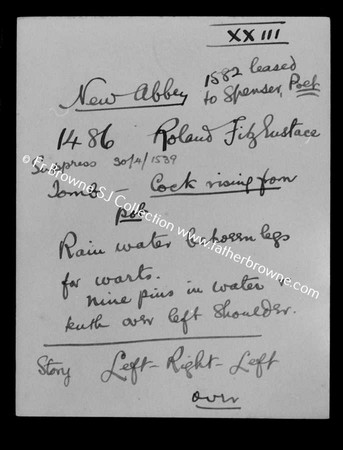 XXIII
New Abbey 1582 leased
to Spenser, Poet
1486 Roland FitzEustace
Suppress 30/4/1539
Tomb - Cock rising from
pot
Rain water between legs
for warts.
nine pins in water &
over left shoulder.
Story Left - Right - Left
over
© Fr Browne SJ Collection www.fatherbrowne.com